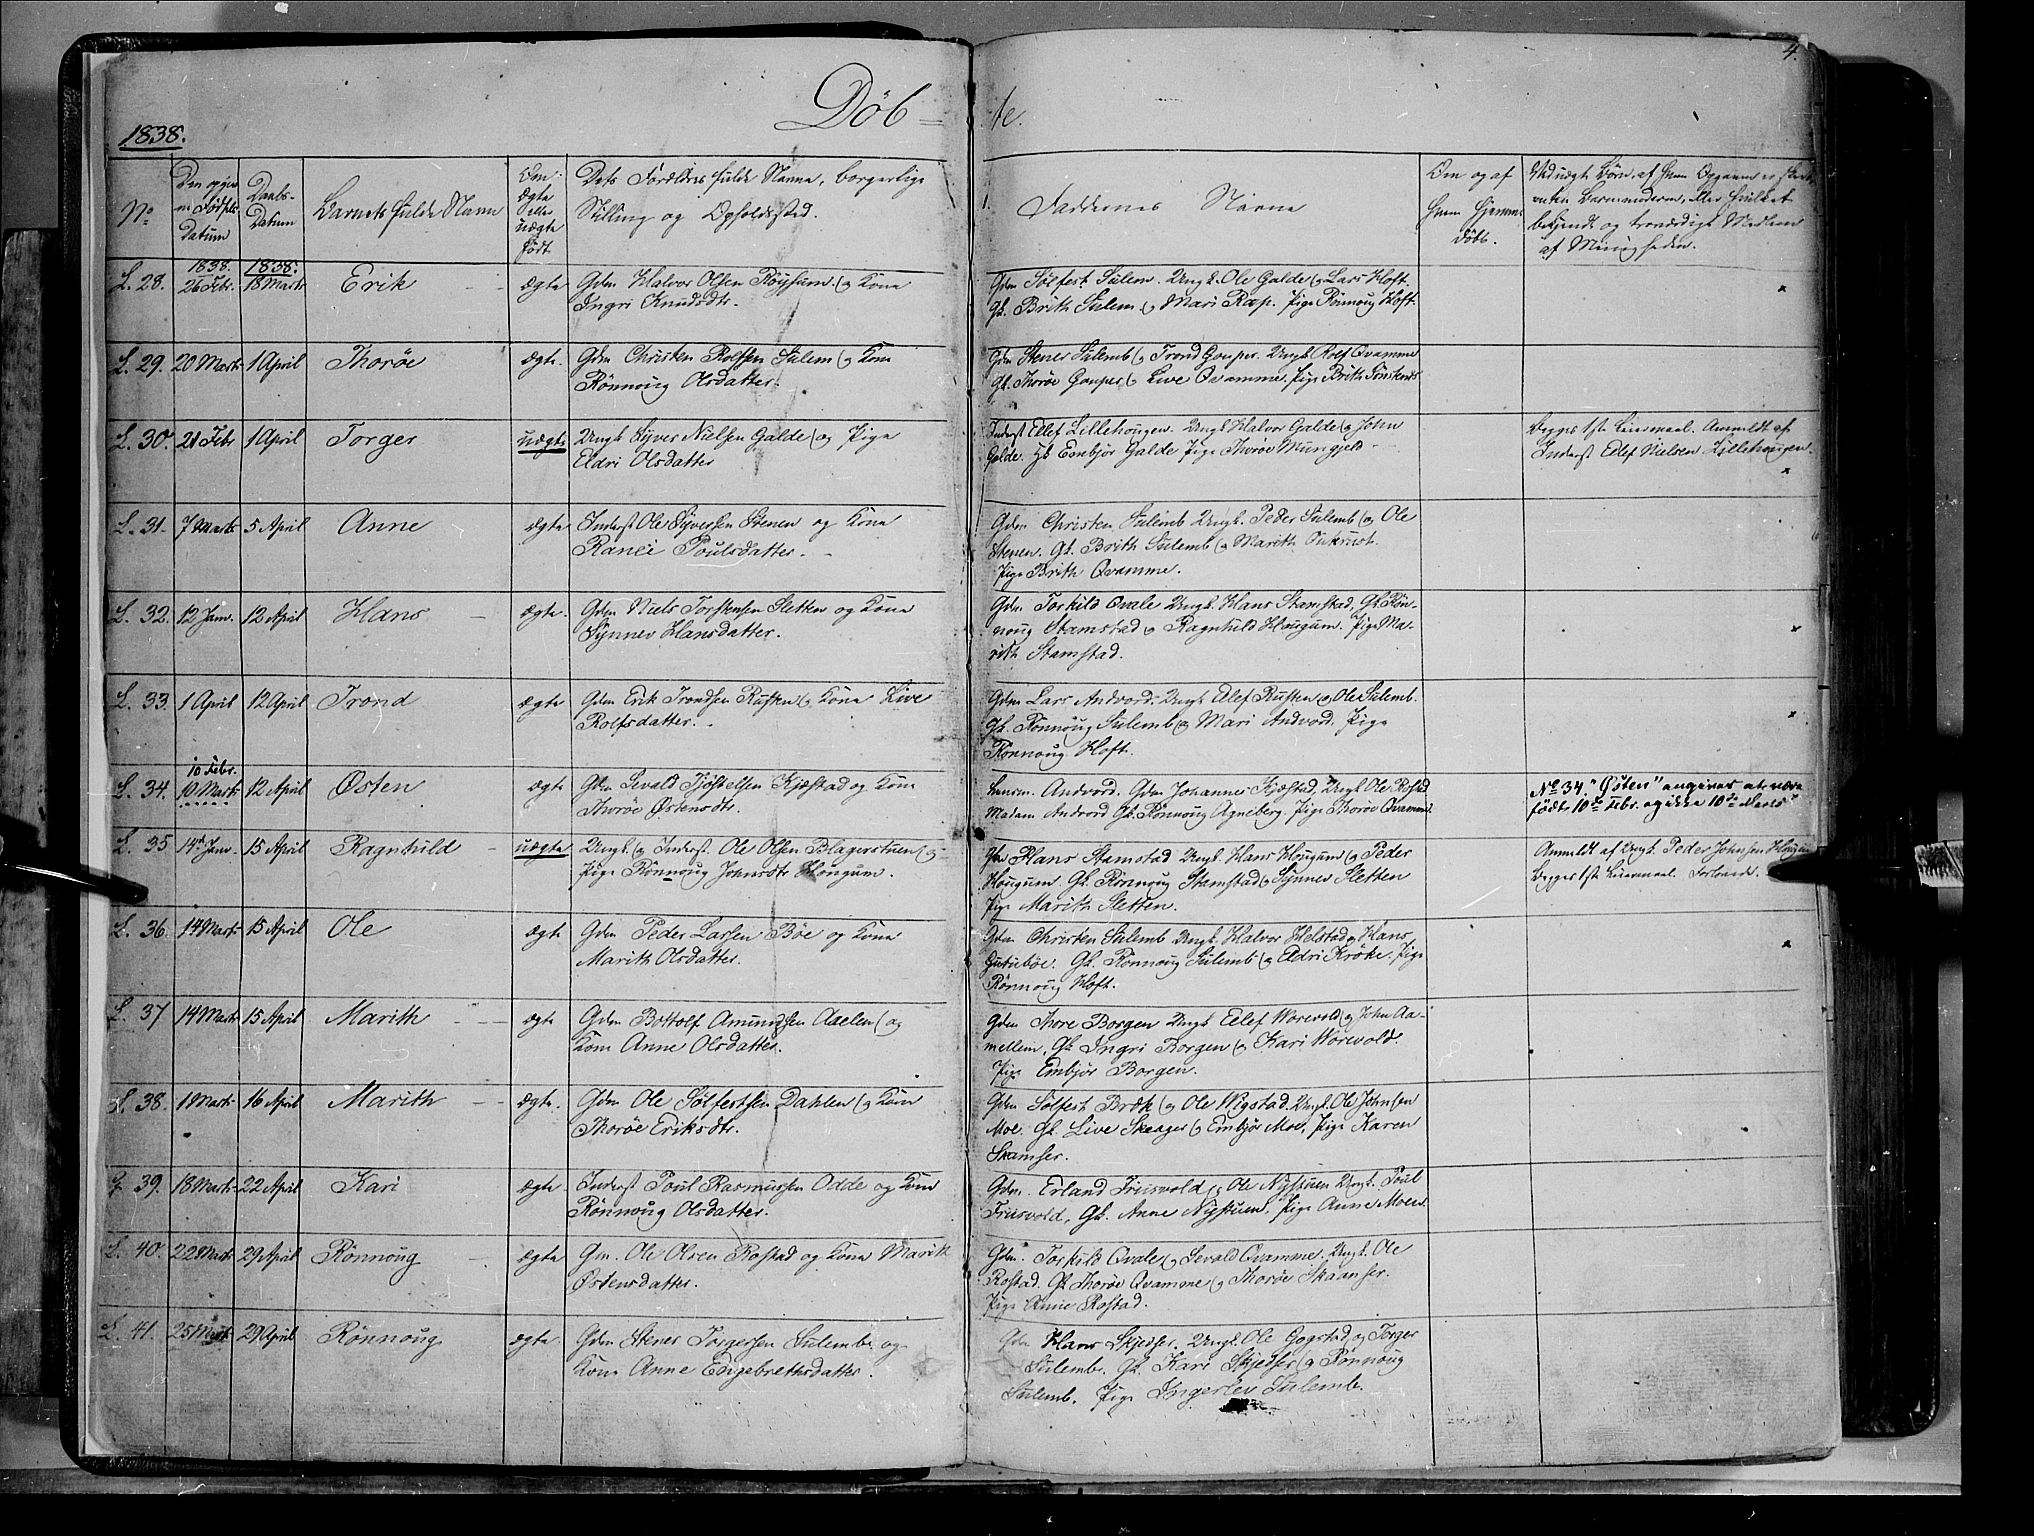 4.
Döb = te.
1838.
No
Den opgivne Födsels-Datum
Daabs-Datum
Barnets fulde Navn
Om ægte eller uægte født
Dets Forældres fulde Navne, borgerlige
Stilling og Opholdssted.
Faddernes Navne
Om og af hvem hjemmedöbt.
Ved uægte Börn, af hvem Opgaven er
enten Jordmoderen, eller hvilket
bekjendt og troværdigt Medlem
af Menigheden.
L. 28. 1838. 26 Febr. 1838. 18 Marts Erik ægte Gdm Halvor Olsen Röysum og Kone
Ingri Knudsdtr.
Gdm Sölfest Sulem. Ungk. Ole Galde og Lars Hoft.
Gk. Brith Sulem og Mari Ræp. Pige Rönnoug Hoft.
L. 29. 20 Marts 1 April Thoröe ægte. Gdm Christen Rolfsen Sulem og Kone
Rönnoug Olsdatter.
Gdm Stener Sulemb og Trond Gouper. Ungk. Rolf Qvamme
Gk. Thoröe Gouper og Live Qvamme. Pige Brith
L. 30. 21 Febr 1 April Torger uægte Ungk Syver Nielsen Galde og Pige
Eldri Olsdatter
Inderst Ellef Lillehougen. Ungk Halvor Galde og John
Galde. Gk Embjör Galde Pige Thoröe Mungjeld
Begges 1ste Leiermaal. Anmeldt af
Inderst Edlef Nielsen Lillehougen.
L. 31. 7 Marts 5 April Anne ægte Inderst Ole Syversen Stenen og Kone
Ranei Poulsdatter.
Gdm Christen Sulemb Ungk. Peder Sulemb og Ole
Stenen. Gk. Brith Sulemb og Marith
Pige Brith Qvamme.
L. 32. 12 Janv. 12 April Hans ægte. Gdm Niels Torstensen Sletten og Kone
Synnev Hansdatter.
Gdm Torkild Qvale Ungk. Hans Stamstad, Gk. Rön-
noug Stamstad og Ragnhild Hougum. Pige Ma-
rith Stamstad.
L. 33. 1 April 12 April Trond ægte Gdm Erik Trondsen Rusten og Kone Live
Rolfsdatter.
Gdm Lars Andvord. Ungk Edlef Rusten og Ole Sulemb.
Gk. Rönnoug Sulemb og Mari Andvord. Pige
Rönnoug Hoft.
L. 34. 10 Febr. 10 Marts 12 April Østen ægte Gdm Sevald Kjæstad og Kone
Thoröe Østensdtr.
Andvord. Gdm Johannes Kjæstad, Ungk Ole Rostad
Madam Andvord Gk. Rönnoug Agneberg. Pige Thoröe Qvamme.
No 34. "Østen" angives at være
födt 10de Febr. og ikke 10de Marts"
L. 35 14de Janv. 15 April Ragnhild uægte Ungk. og Inderst. Ole Olsen og
Pige Rönnoug Johnsdtr Hougum.
Gdm Hans Stamstad Ungk. Hans Hougum og Peder
Hougum. Gk. Rönnoug Stamstad og Synnev Sletten
Pige Marith Sletten.
Anmeldt af Ungk. Peder Johnsen Hougum
Begges 1ste Leiermaal. Forlovede.
L. 36. 14 Marts 15 April Ole ægte Gdm Peder Larsen Böe og Kone
Marith Olsdatter.
Gdm Christen Sulemb Ungk. Halvor Helstad og Hans
Gk. Rönnoug Sulemb og Eldri Kröke. Pige
Rönnoug Hoft.
L. 37 14 Marts 15 April Marith ægte Gdm Bottolf Amundsen Aaelen og
Kone Anne Olsdatter.
Gdm Thore Borgen Ungk Eelef Worevold og John Aa-
mellem, Gk Ingri Borgen og Kari Worevold.
Pige Embjör Borgen.
L. 38. 1 Marts 16 April Marith ægte. Gdm Ole Sölfestsen Dahlen og Kone
Thoröe Eriksdtr.
Gdm Sölfest Bræk og Ole Wigstad. Ungk. Ole Johnsen
Moe. Gk. Live Skaager og Embjör Moe, Pige Karen
Skamser.
L. 39. 18 Marts 22 April Kari ægte. Inderst Poul Rasmussen Odde og Kone
Rönnoug Olsdatter.
Gdm. Erland Friisvold og Ole Nystuen Ungk. Poul
Friisvold, Gk. Anne Nystuen. Pige Anne Moen.
L. 40. 22 Marts 29 April Rönnoug ægte Gm. Ole Olsen Rostad og Kone Marith
Østensdatter.
Gdm. Torkild Qvale og Sevald Qvamme. Ungk. Ole
Rostad. Gk Thoröe Qvamme og Thoröe Skaanser.
Pige Anne Rostad.
L. 41. 25 Marts 29 April Rönnoug ægte. Gdm Stener Torgersen Sulemb og
Kone Anne Engebrethsdatter.
Gdm Hans Skjedser. Ungk. Ole Gogstad og Torger
Sulemb. Gk. Kari Skjedser og Rönnoug
Sulemb. Pige Ingerlev Sulemb.